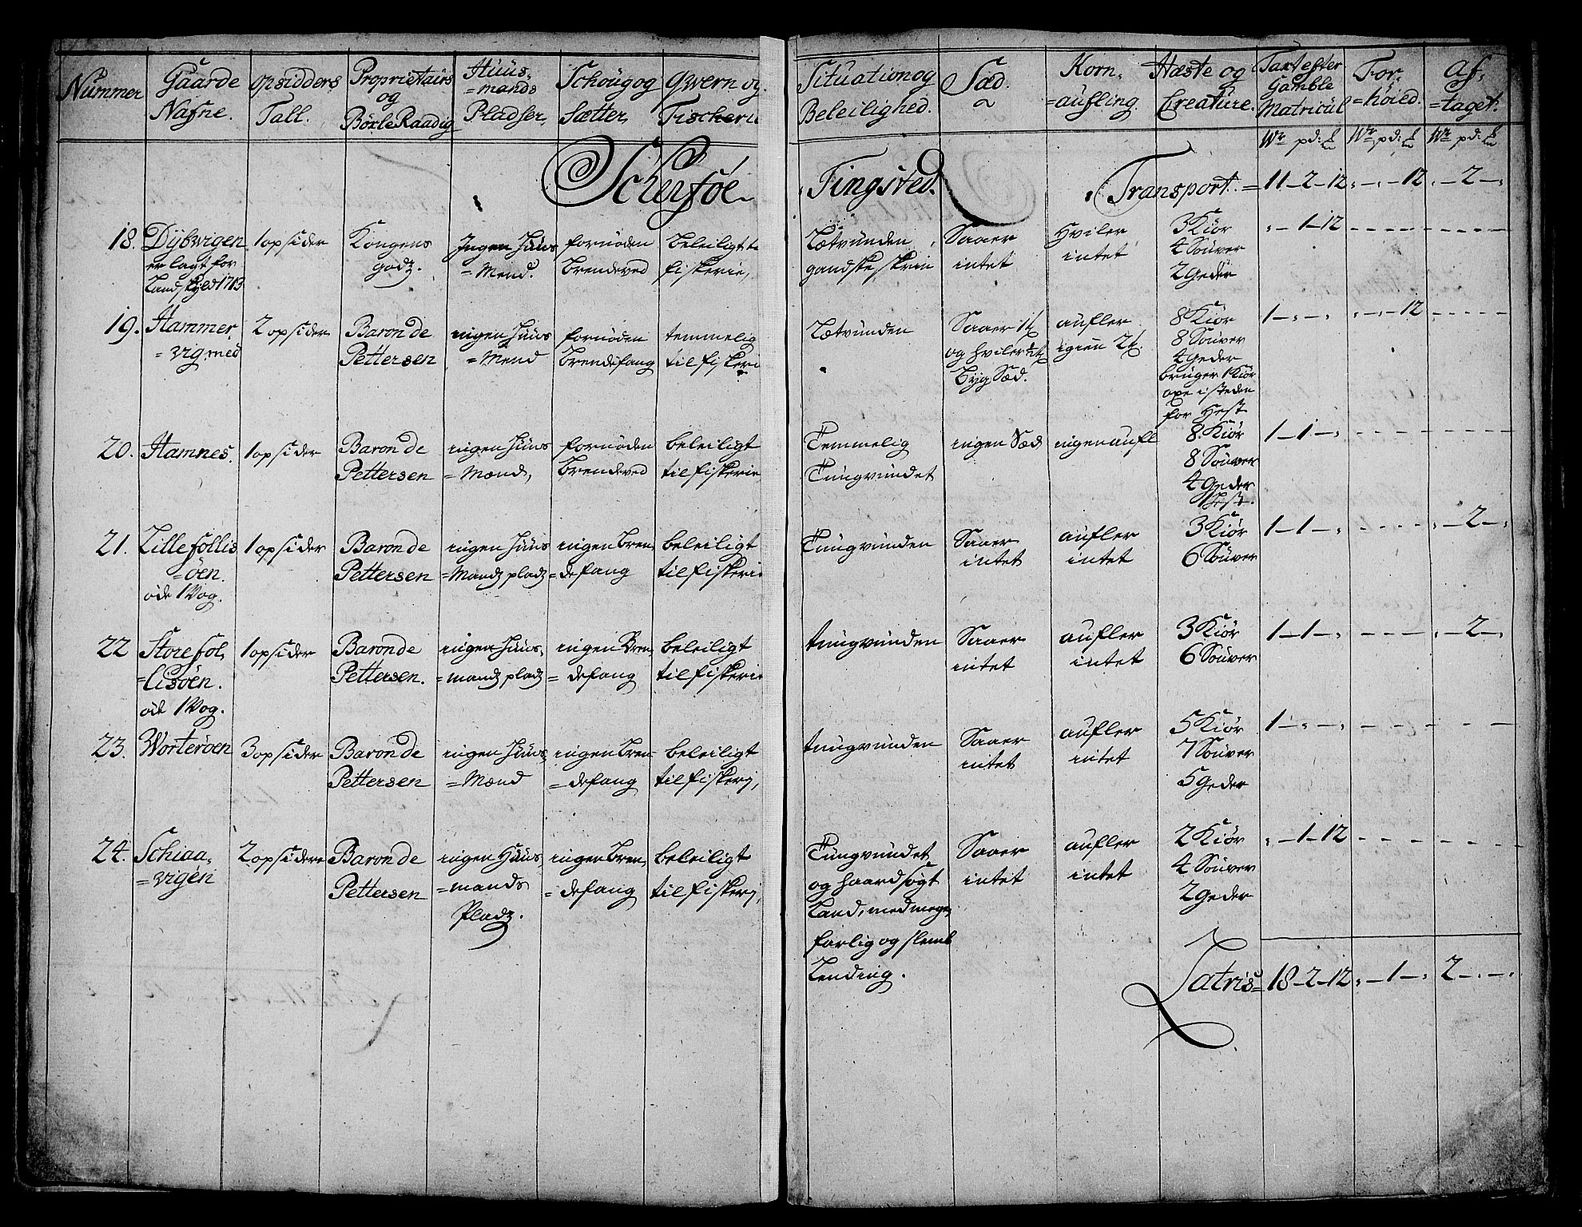 Nummer
Gaarde
Nafne.
Opsidders
Tall.
Proprietairs
og
Böxle Raadig
Huus-
=mands
Pladser,
Schoug og
Sætter,
Qwern og
Fischerie
Situation og
Beleilighed.
Sæd.
Korn-
=aufling
Hæste og
Creature.
Taxt efter
Gamble
Matricul
For-
=höied.
Af-
=taget.
Wr pd: L
Wr pd: L
Wr pd: L
Scherföe
Tingsted.
Transport = 11-2-12 - - 12 - 2 -
18. Dybwigen
er lagt for
Landskyld 1713
1 opsider
Kongens
godz.
Ingen Huus
=Mend.
fornöden
brendeved
beleiligt te
fiskerie,
Letvunden
gandske skrin
Saaer
intet
Hviler
intet
3 Kiör
4 Souver
2 Geder
- 1 - 12
19. Hammer,
=vig med
2 opsider
Baron de
Pettersen
ingen Huus
=Mend
fornöden
brendefang
temmelig
til fiskeri
Letvunden
Saaer 1 t
og hviler t
byg Sæd.
aufler
igien 2 t.
8 Kiör
8 Souver
4 Geder
bruger 1 Kiör
oxe i steden
for Hest
1 - - - - 12
20. Hamnes.
1 opsider
Baron de
Pettersen
ingen Huus
=Mend,
fornöden
brendeved
beleiligt
til fiskerie
Temmelig
Tungvundet
ingen Sæd
ingen aufl
8 Kiör
8 Souver
4 Geder
1 Hest.
1 - 1 -
21. Lille follis
=öen.
öde 1 Vog.
1 opsider
Baron de
Pettersen
ingen Huus
=Mandz pladz
ingen Bren
=defang
beleiligt
til fiskerie
Tungvunden
Saaer
intet
aufler
intet
3 Kiör
6 Souver
1 - 1 - - 2 -
22 Store fol,
=lisöen.
öde 1 Vog.
1 opsider
Baron de
Pettersen.
ingen Huus,
=mandz pladz
ingen Bren,
=defang
beleiligt
til fiskerie
tungvunden
Saaer
intet
aufler
intet
3 Kiör
6 Souver
1 - 1 - - 2 -
23. Worteröen
3 opsider
Baron de
Pettersen
ingen Huus
=Mænd
ingen bren-
=defang
beleiligt
til fiskerj,
tungvunden
Saaer
intet
aufler
intet
5 Kiör
7 Souver
5 Geder
1 - - -
24. Schiaa,
=vigen
2 opsidere
Baron de
Pettersen
ingen Huus,
=mands
Pladz.
ingen bren,
=defang
beleiligt
til fiskerj,
Tungvundet
og haardsögt
Land, med meget
farlig og slemb
Lending.
Saaer
intet
aufler
intet
2 Kiör
4 Souver
2 Geder
- 1 - 12
Latris = 18-2-12 - 1 - 2 - -